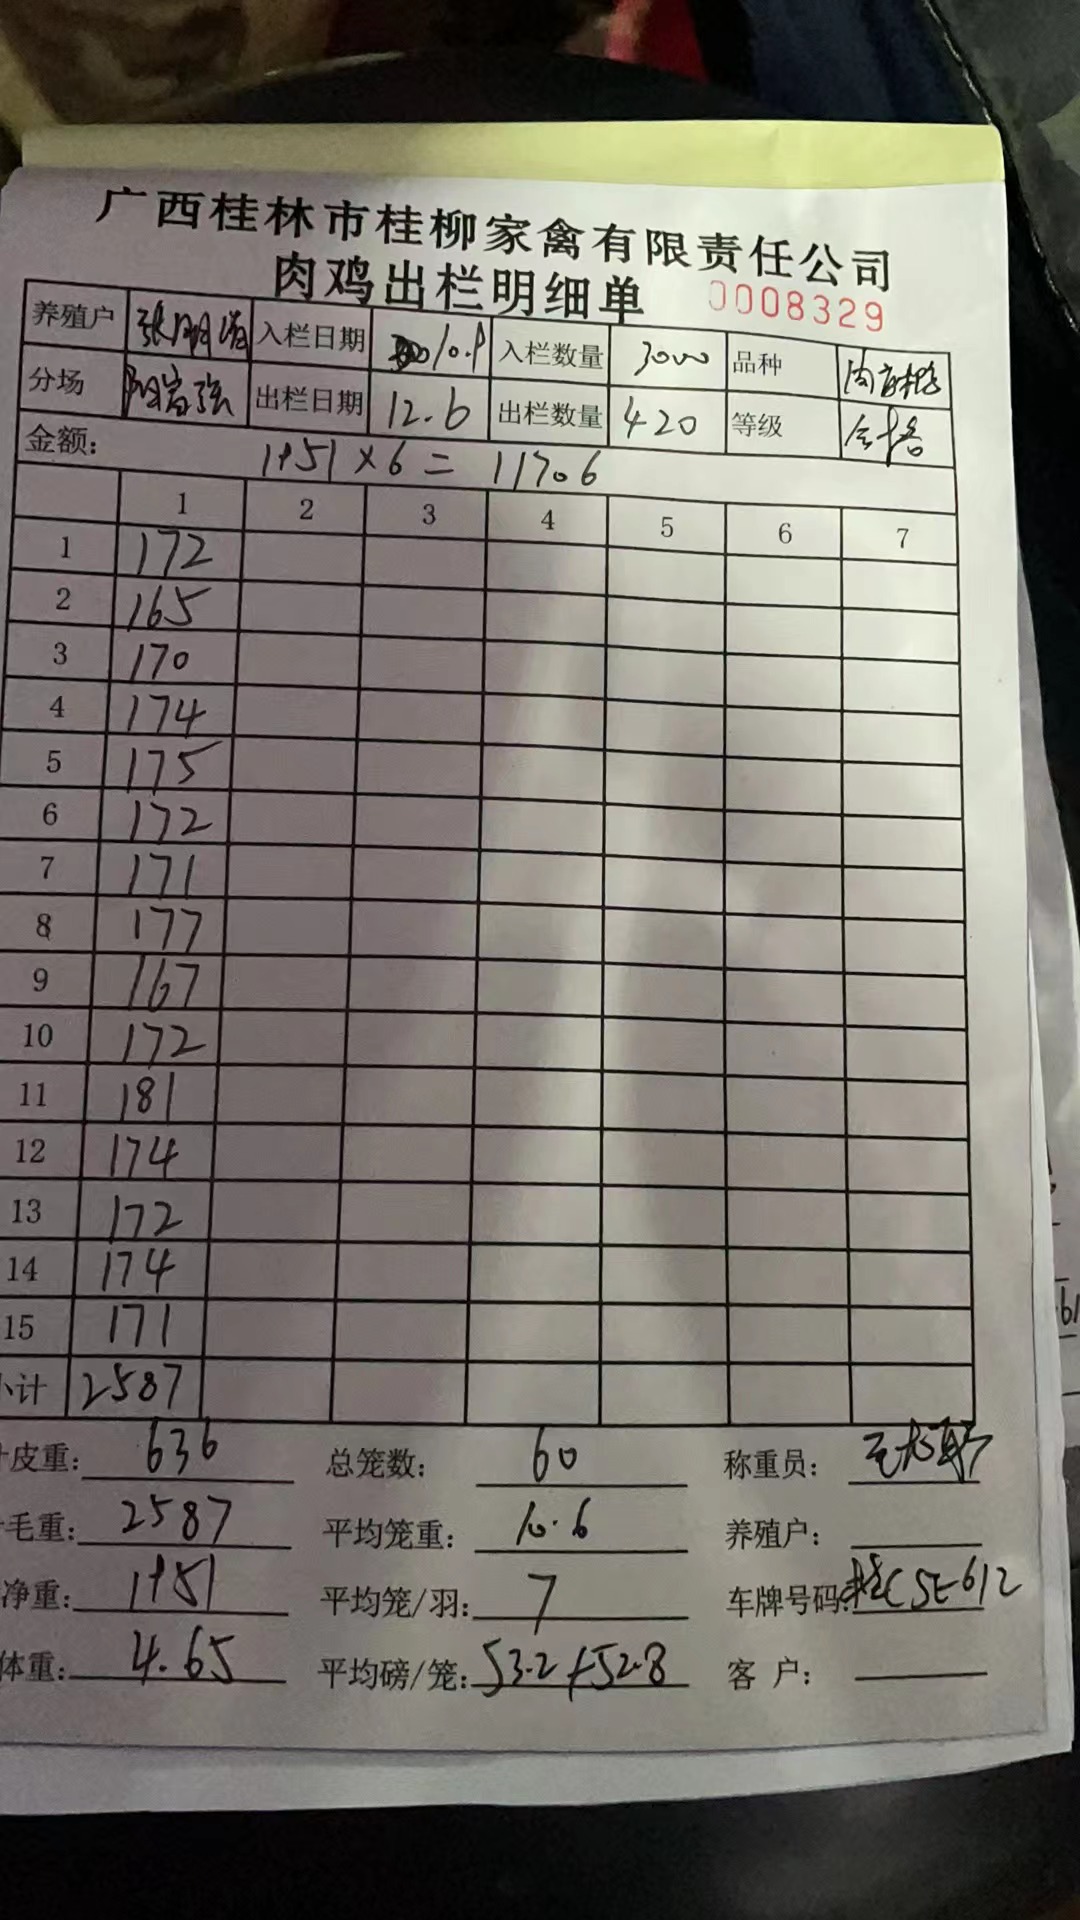 广西桂林市桂柳家禽有限责任公司
肉鸡出栏明细单 0008329
养殖户 入栏日期 10.9 入栏数量 3000 品种
分场 出栏日期 12.6 出栏数量 420 等级 合格
金额: 1951×6=11706
1 2 3 4 5 6 7
1 172
2 165
3 170
4 174
5 175
6 172
7 171
8 177
9 167
10 172
11 181
12 174
13 172
14 174
15 171
小计 2587
皮重: 636 总笼数: 60 称重员:
毛重: 2587 平均笼重: 10.6 养殖户:
净重: 1951 平均笼/羽: 7 车牌号码: 桂C5E612
体重: 4.65 平均磅/笼: 53.2+52.8 客 户: